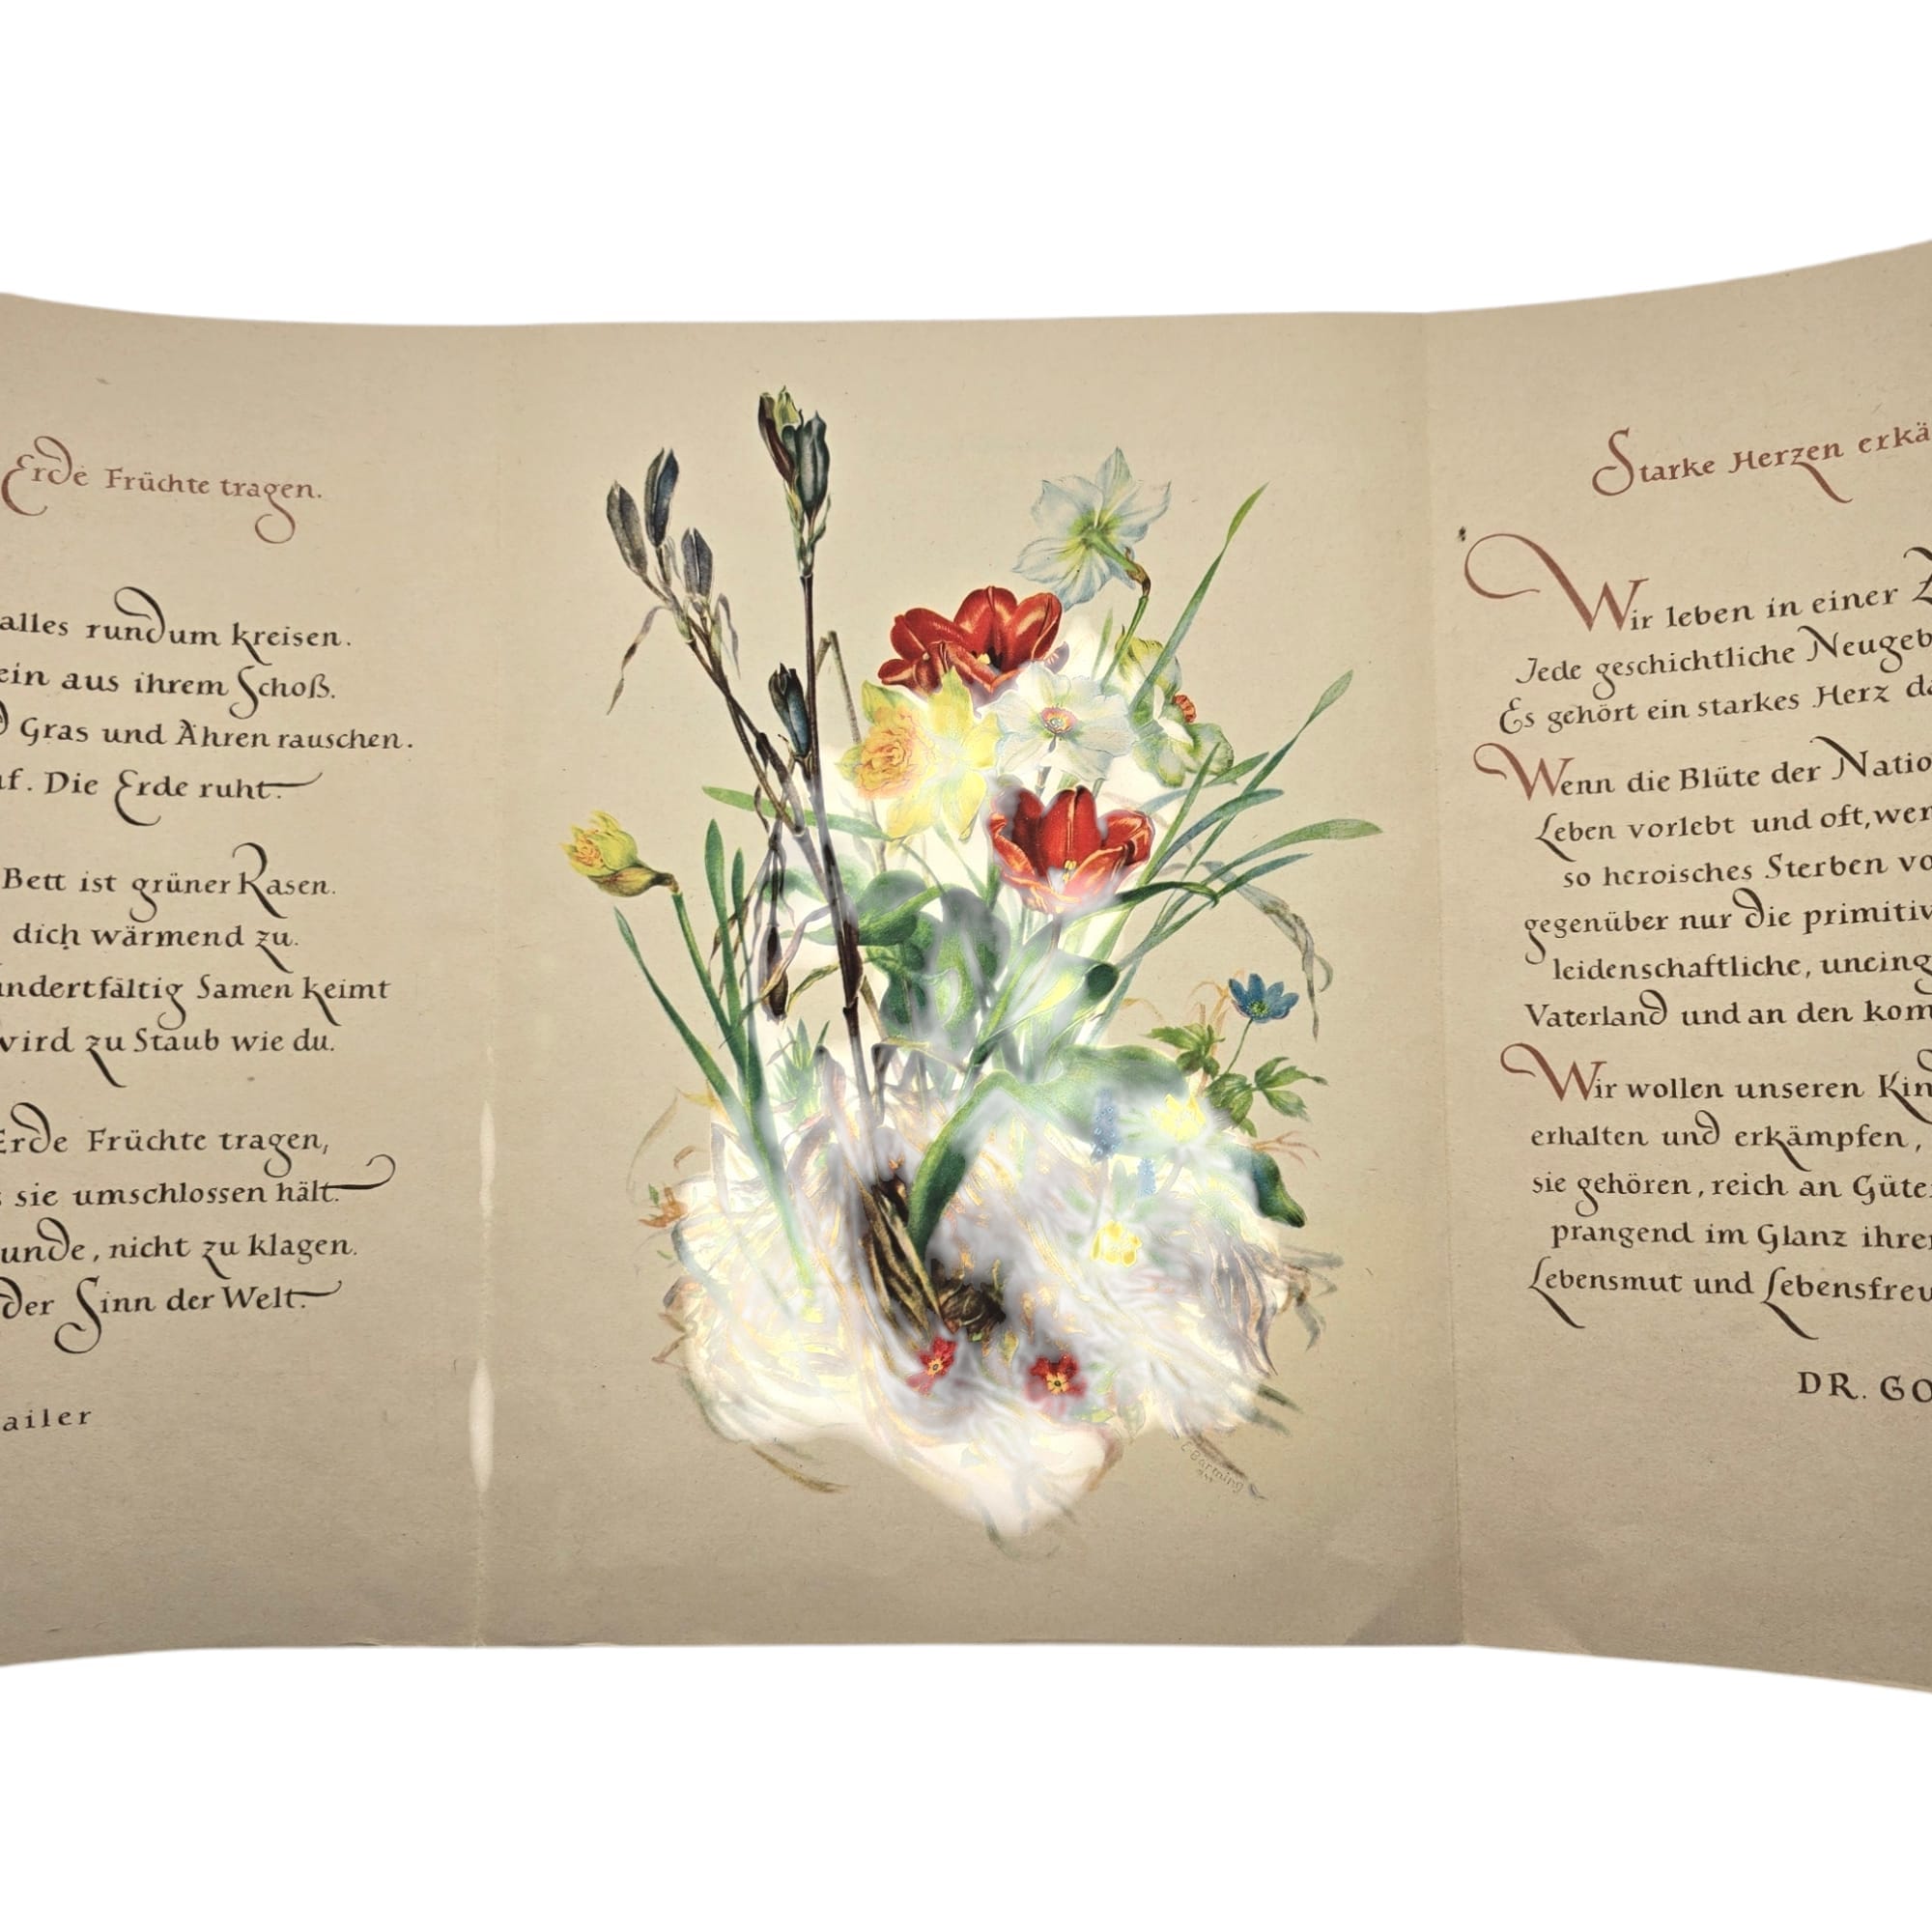 Erde Früchte tragen.
alles rundum kreisen.
ein aus ihrem Schoß.
Gras und Ähren rauschen.
Die Erde ruht.
Bett ist grüner Rasen.
dich wärmend zu.
undertfältig Samen keimt
wird zu Staub wie du.
Erde Früchte tragen,
sie umschlossen hält.
unde, nicht zu klagen.
der Sinn der Welt.
ailer
Starke Herzen erkä
Wir leben in einer Z
Jede geschichtliche Neugeb
Es gehört ein starkes Herz da
Wenn die Blüte der Natio
Leben vorlebt und oft, wer
so heroisches Sterben vo
gegenüber nur die primitiv
leidenschaftliche, uneing
Vaterland und an den kom
Wir wollen unseren Kin
erhalten und erkämpfen,
sie gehören, reich an Güte
prangend im Glanz ihre
Lebensmut und Lebensfreu
DR. GO